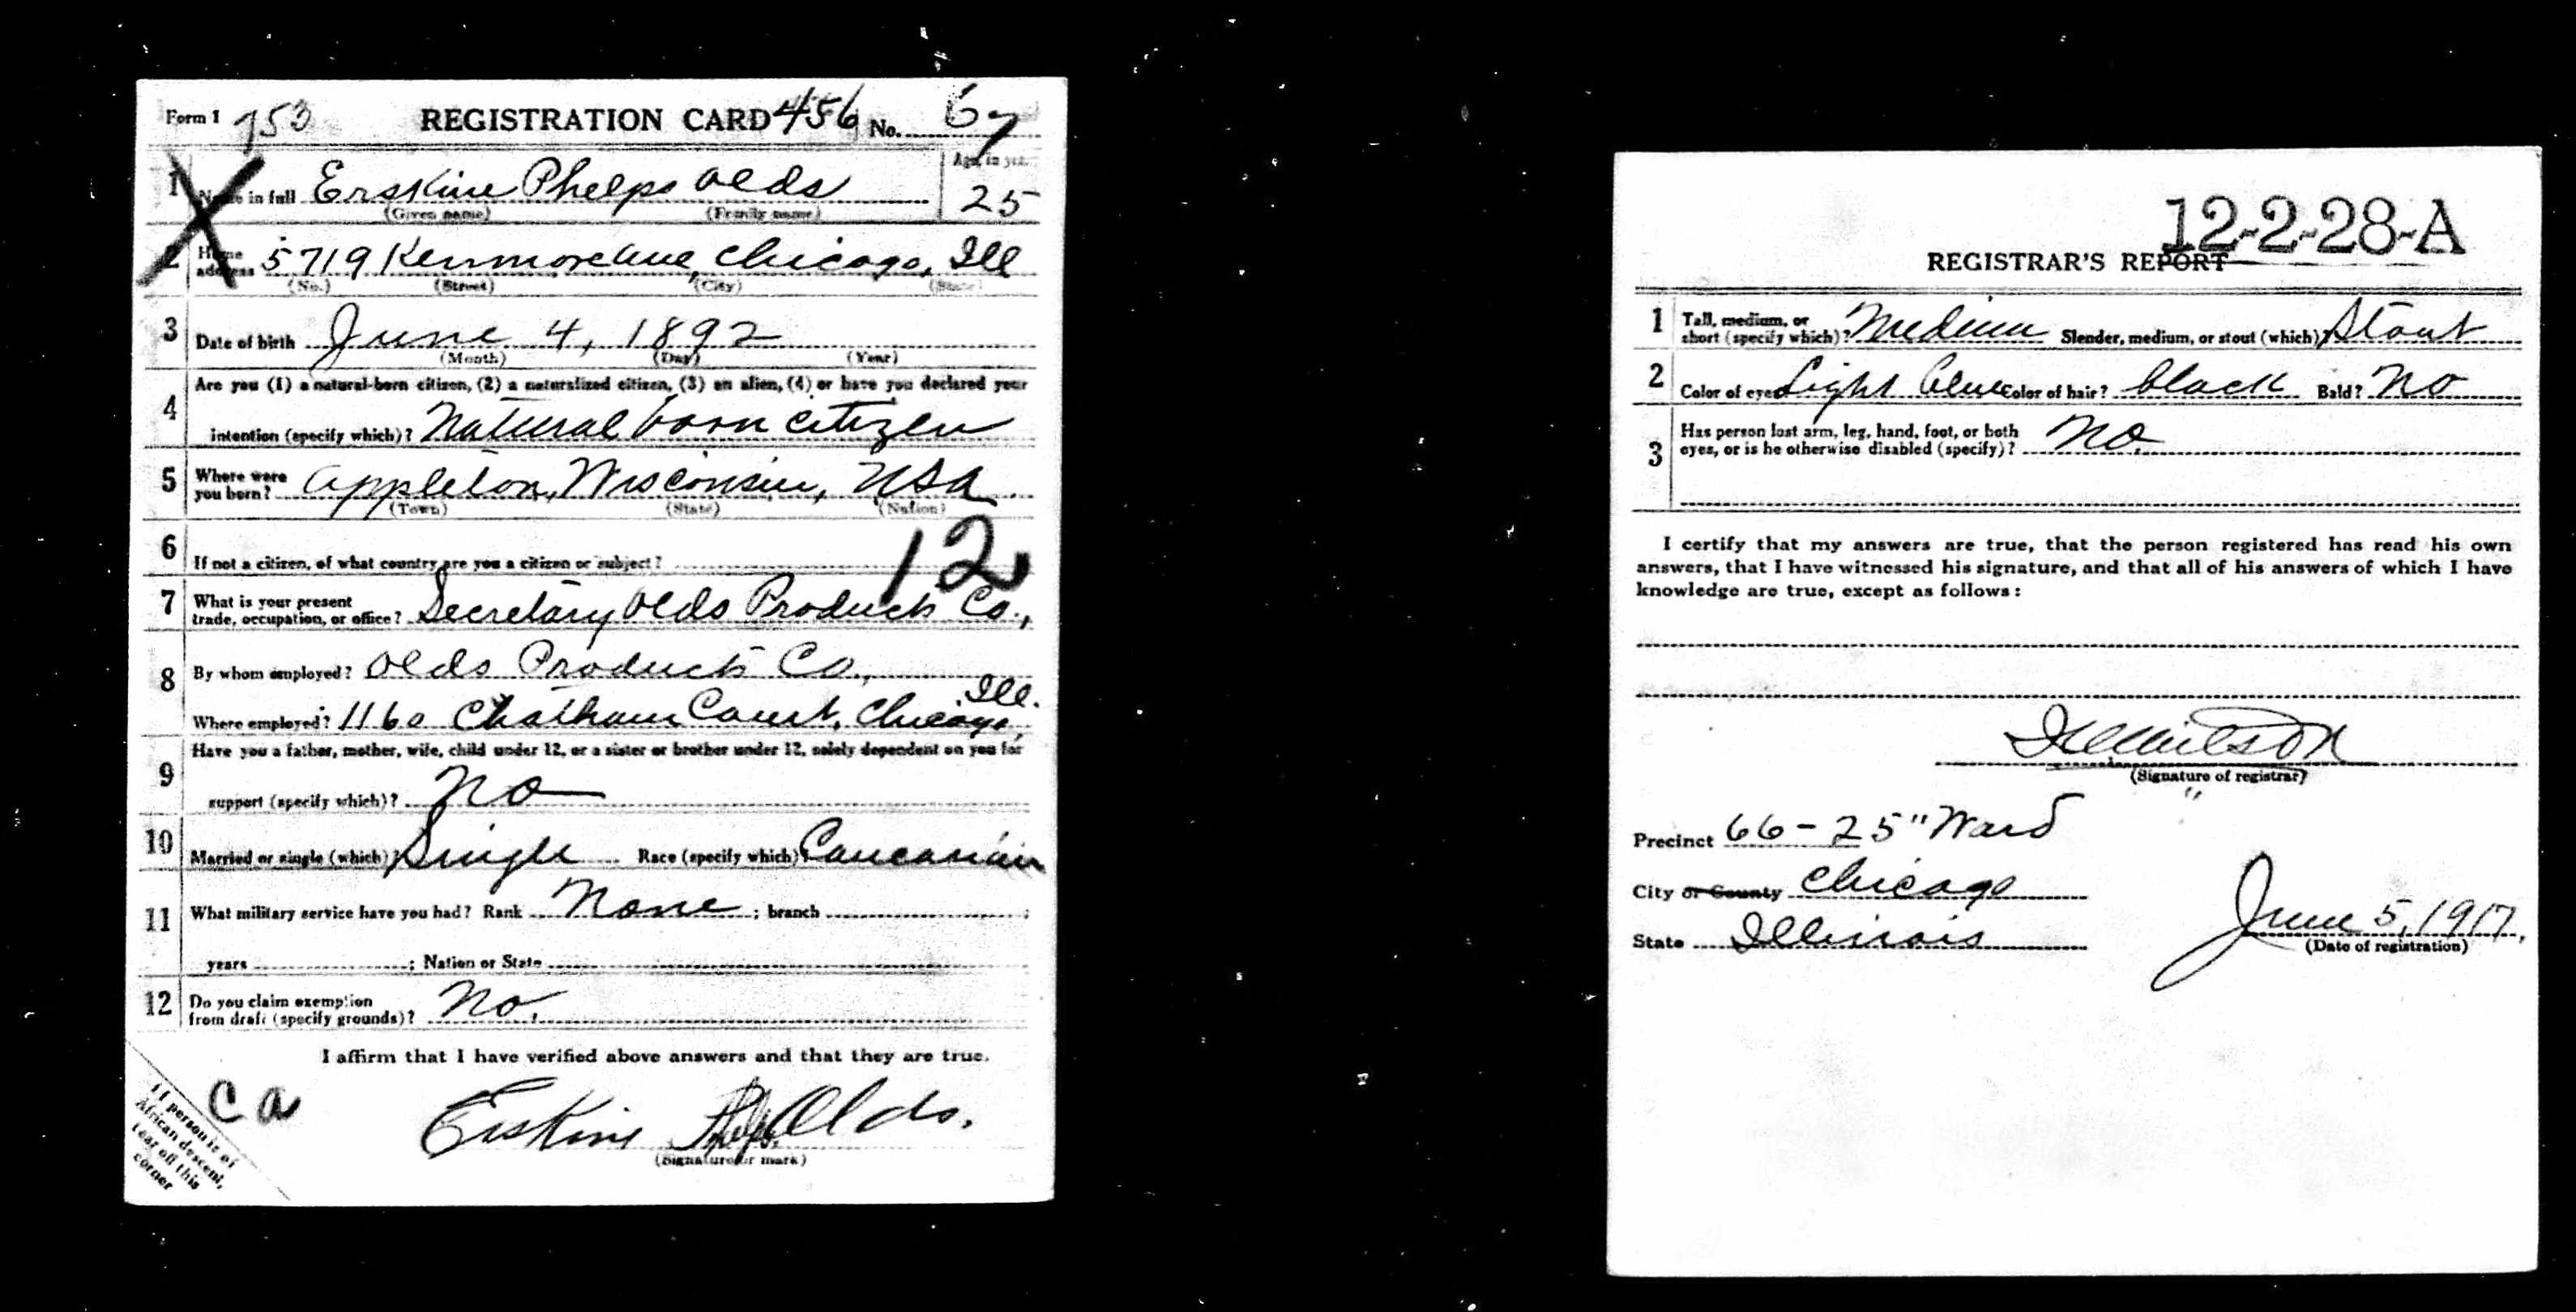 Form 1 753 REGISTRATION CARD 456 No. 67
1 Name in full Erskine Phelps Olds Age, in yrs. 25
(Given name) (Family name)
2 Home address 5719 Kenmore Ave, Chicago, Ill
(No.) (Street) (City) (State)
3 Date of birth June 4, 1892
(Month) (Day) (Year)
4 Are you (1) a natural-born citizen, (2) a naturalized citizen, (3) an alien, (4) or have you declared your
intention (specify which)? Natural born citizen
5 Where were you born? Appleton, Wisconsin, USA
(Town) (State) (Nation)
12
6 If not a citizen, of what country are you a citizen or subject?
7 What is your present trade, occupation, or office? Secretary Olds Products Co.,
8 By whom employed? Olds Products Co.,
Where employed? 1160 Chatham Court, Chicago, Ill.
9 Have you a father, mother, wife, child under 12, or a sister or brother under 12, solely dependent on you for
support (specify which)? No
10 Married or single (which)? Single Race (specify which)? Caucasian
11 What military service have you had? Rank None ; branch ;
years ; Nation or State
12 Do you claim exemption from draft (specify grounds)? No.
I affirm that I have verified above answers and that they are true.
Erskine Phelps Olds.
(Signature or mark)
Ca
If person is of
African descent,
tear off this
corner
12-2-28-A
REGISTRAR'S REPORT
1 Tall, medium, or short (specify which)? Medium Slender, medium, or stout (which)? Stout
2 Color of eyes? Light blue Color of hair? black Bald? No
3 Has person lost arm, leg, hand, foot, or both eyes, or is he otherwise disabled (specify)? No.
I certify that my answers are true, that the person registered has read his own
answers, that I have witnessed his signature, and that all of his answers of which I have
knowledge are true, except as follows:
(Signature of registrar)
Precinct 66-25" Ward
City or County Chicago
State Illinois
June 5, 1917.
(Date of registration)